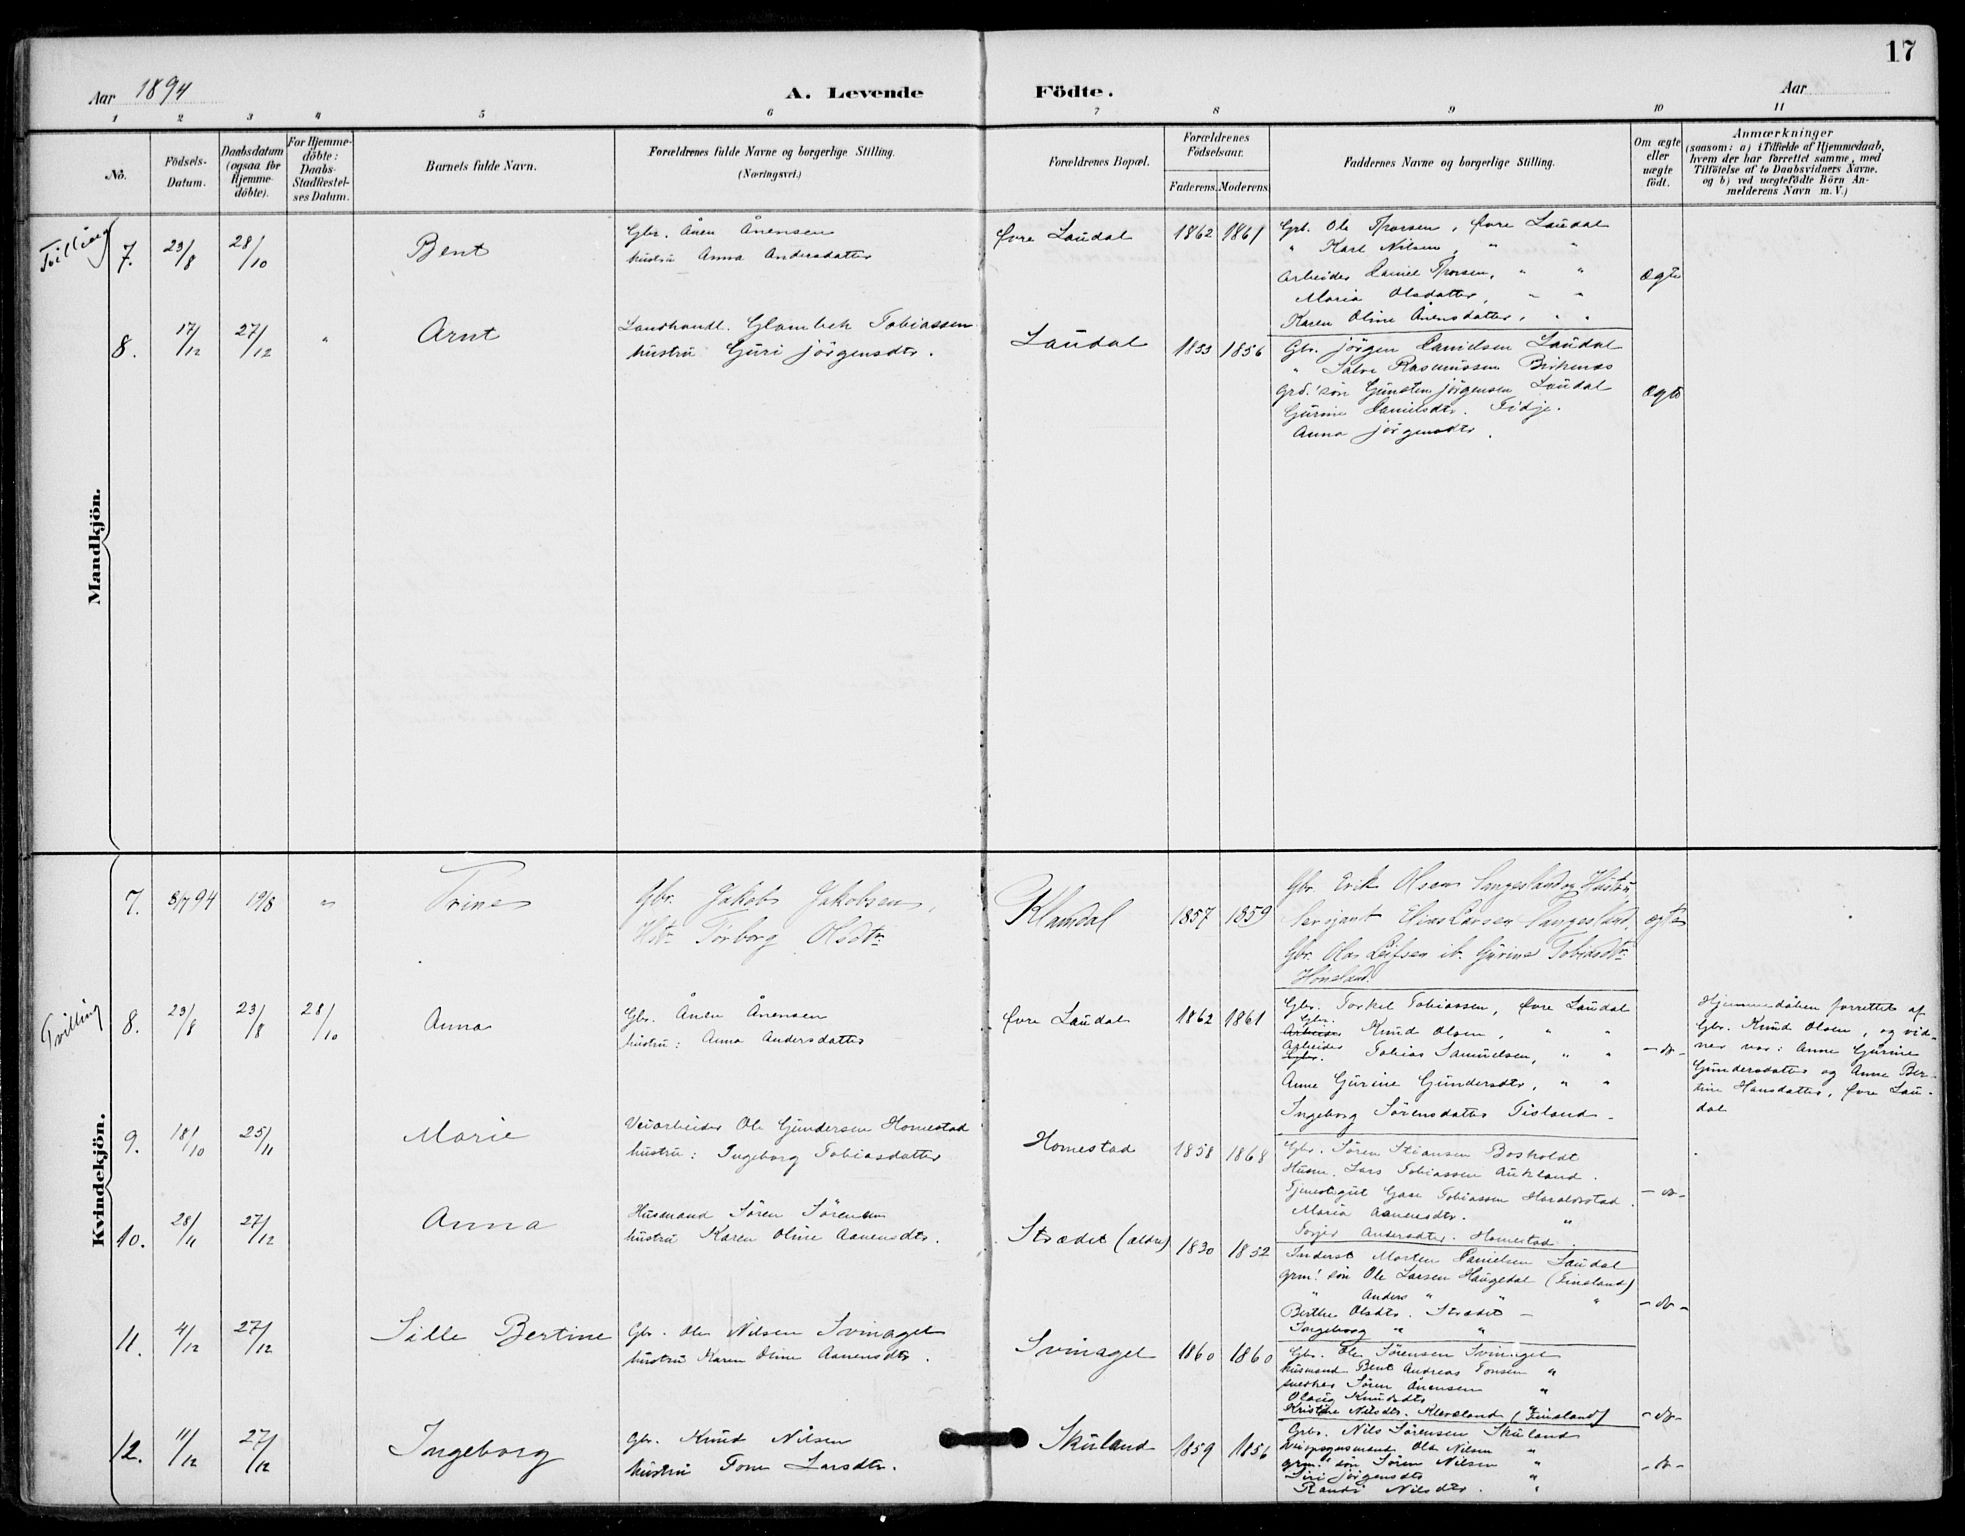 17
Aar 1894 A. Levende Födte. Aar
1 2 3 4 5 6 7 8 9 10 11
No. Födsels-Datum. Daabsdatum (ogsaa for Hjemmedöbte). For Hjemmedöbte: Daabs-Stadfæstelses Datum. Barnets fulde Navn. Forældrenes fulde Navne og borgerlige Stilling. (Næringsvei.) Forældrenes Bopæl. Forældrenes Födselsaar. Faderens. Moderens. Faddernes Navne og borgerlige Stilling. Om ægte eller uægte födt. Anmærkninger (saasom: a) i Tilfælde af Hjemmedaab, hvem der har forrettet samme, med Tilföielse af to Daabsvidners Navne. og b) ved uægtefödte Börn Anmelderens Navn m. V.)
Mandkjön.
Tvilling 7. 23/8 28/10 Bent
Gbr. Ånen Ånensen
hustru Anna Andersdatter
Øvre Laudal 1862 1861
Grb. Ole Thorsen, Øvre Laudal
" Karl Nilsen, " "
Arbeider Daniel Thorsen, " "
Maria Olsdatter, " "
Karen Oline Ånensdatter, " "
Ægte
8. 17/12 27/12 " Arnt
Landhandl. Glambek Tobiassen
hustru Guri Jörgensdtr.
Laudal 1853 1856
Gbr. Jörgen Danielsen Laudal
" Salve Rasmussen Birkenes
Grd. sön Gunsten Jörgensen Laudal
Gurine Danielsdtr. Fidje.
Anna Jörgensdtr.
Ægte
Kvindekjön.
7. 8/7 94 19/8 " Trine
Gbr. Jakob Jakobsen,
Hstr Torborg Olsdtr
Klundal 1857 1859
Gbr. Erik Olsen Sangesland og Hustru
Serjant Elias Larsen Sangesland,
Gbr. Olas Leifsen ib. Gurine Tobiasdtr
Honeland.
ægte
Tvilling 8. 23/8 23/8 28/10 Anna
Gbr. Ånen Ånensen
hustru: Anna Andersdatter
Øvre Laudal 1862 1861
Gbr. Torkel Tobiassen, Øvre Laudal
Gbr. Knud Olsen, " "
Arbeider Tobias Samuelsen, " "
Anne Gurine Gundersdtr, " "
Ingeborg Sörensdatter Fisland -
- do -
Hjemmedåben forrettet af
Gbr. Knud Olsen, og vid-
ner var: Anne Gurine
Gundersdatter og Anne Ber-
tine Hansdatter, Øvre Lau-
dal
9. 18/10 25/11 Marie
Veiarbeider Ole Gundersen Homestad
hustru: Ingeborg Tobiasdatter
Homestad 1858 1868
Gbr. Sören Stiansen Bosholdt
Husm. Lars Tobiassen Aukland.
Tjenestegut Gase Tobiassen Haraldstad.
Maria Aanensdtr. "
Torjer Andersdtr. Homestad.
- do -
10. 28/11 27/12 Anna
Husmand Sören Sörensen
hustru Karen Oline Aanensdtr.
Strædet (ældre) 1830 1852
Inderst Morten Danielsen Laudal
grm. sön Ole Larsen Haugedal (Finsland)
" Anders " " "
Berthe Olsdtr. Strædet -
Ingeborg " "
- do -
11. 4/12 27/12 Sille Bertine
Gbr. Ole Nilsen Svinaget
hustru Karen Oline Aanensdtr.
Svinaget 1860 1860
Gbr. Ole Sörensen Svinaget
husmand Bent Andreas Tonsen "
snedker Sören Ånensen "
Olaug Knudsdtr "
Kristine Nilsdtr. Kleveland (Finsland)
- do -
12. 11/12 27/12 Ingeborg
Gbr. Knud Nilsen
hustru Tone Larsdtr.
Skuland 1859 1856
Grbr. Nils Sörensen Skuland
Ole Nilsen "
grm. sön Sören Nilsen "
Siri Jörgensdtr "
Randi Nilsdtr. "
- do -